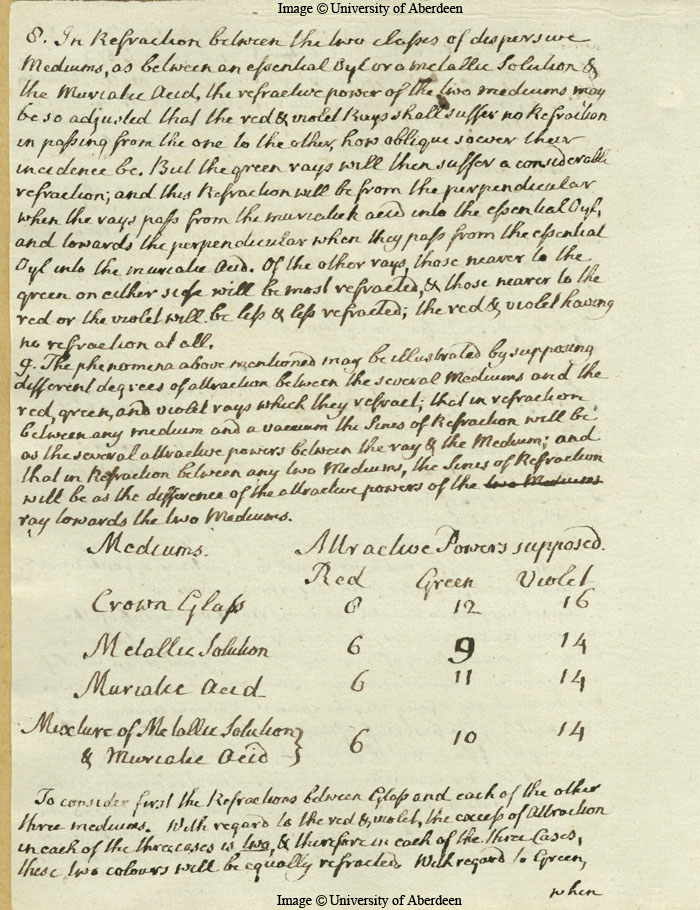 Image © University of Aberdeen
8. In Refraction between the two classes of dispersive
Mediums, as between an essential Oyl or a metallic Solution &
the Muriatic Acid, the refractive power of the two mediums may
be so adjusted that the red & violet Rays shall suffer no Refraction
in passing from the one to the other, how oblique soever their
incidence be. But the green rays will then suffer a considerable
refraction; and this Refraction will be from the perpendicular
when the rays pass from the muriatick acid into the essential Oyl,
and towards the perpendicular when they pass from the essential
Oyl into the muriatic Acid. Of the other rays, those nearer to the
green on either side will be most refracted, & those nearer to the
red or the violet will be less & less refracted; the red & violet having
no refraction at all.
9. The phenomena above mentioned may be illustrated by supposing
different degrees of attraction between the several Mediums and the
red, green, and violet rays which they refract; that in refraction
between any medium and a vacuum the Sines of Refraction will be
as the several attractive powers between the ray & the Medium; and
that in Refraction between any two Mediums, the Sines of Refraction
will be as the difference of the attractive powers of the two Mediums
ray towards the two Mediums.
Mediums. Attractive Powers supposed.
Red Green Violet
Crown Glass 8 12 16
Metallic Solution 6 9 14
Muriatic Acid 6 11 14
Mixture of Metallic Solution
& Muriatic Acid } 6 10 14
To consider first the Refractions between Glass and each of the other
three mediums. With regard to the red & violet, the excess of Attraction
in each of the three cases is two, & therefore in each of the three Cases,
these two colours will be equally refracted. With regard to Green,
when
Image © University of Aberdeen